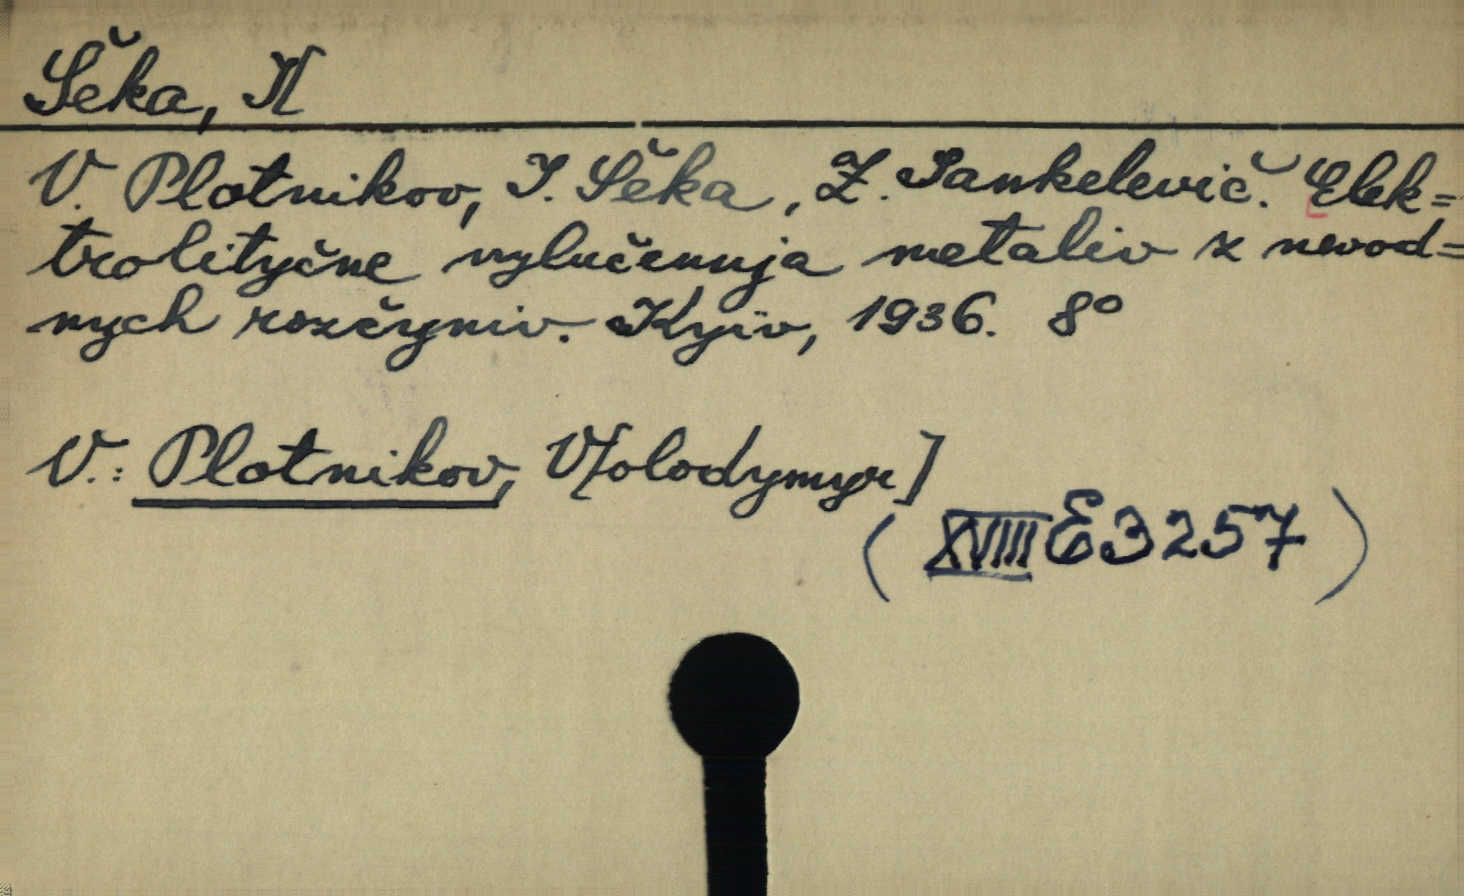 Šeka, I[
V. Plotnikov, I. Šeka, Z. Jankelevič. Elek=
trolityčne vylučennja metaliv z nevod=
nych rozčyniv. Kyïv, 1936. 8°
V.: Plotnikov, V[olodymyr]
(XVIII E 3257)